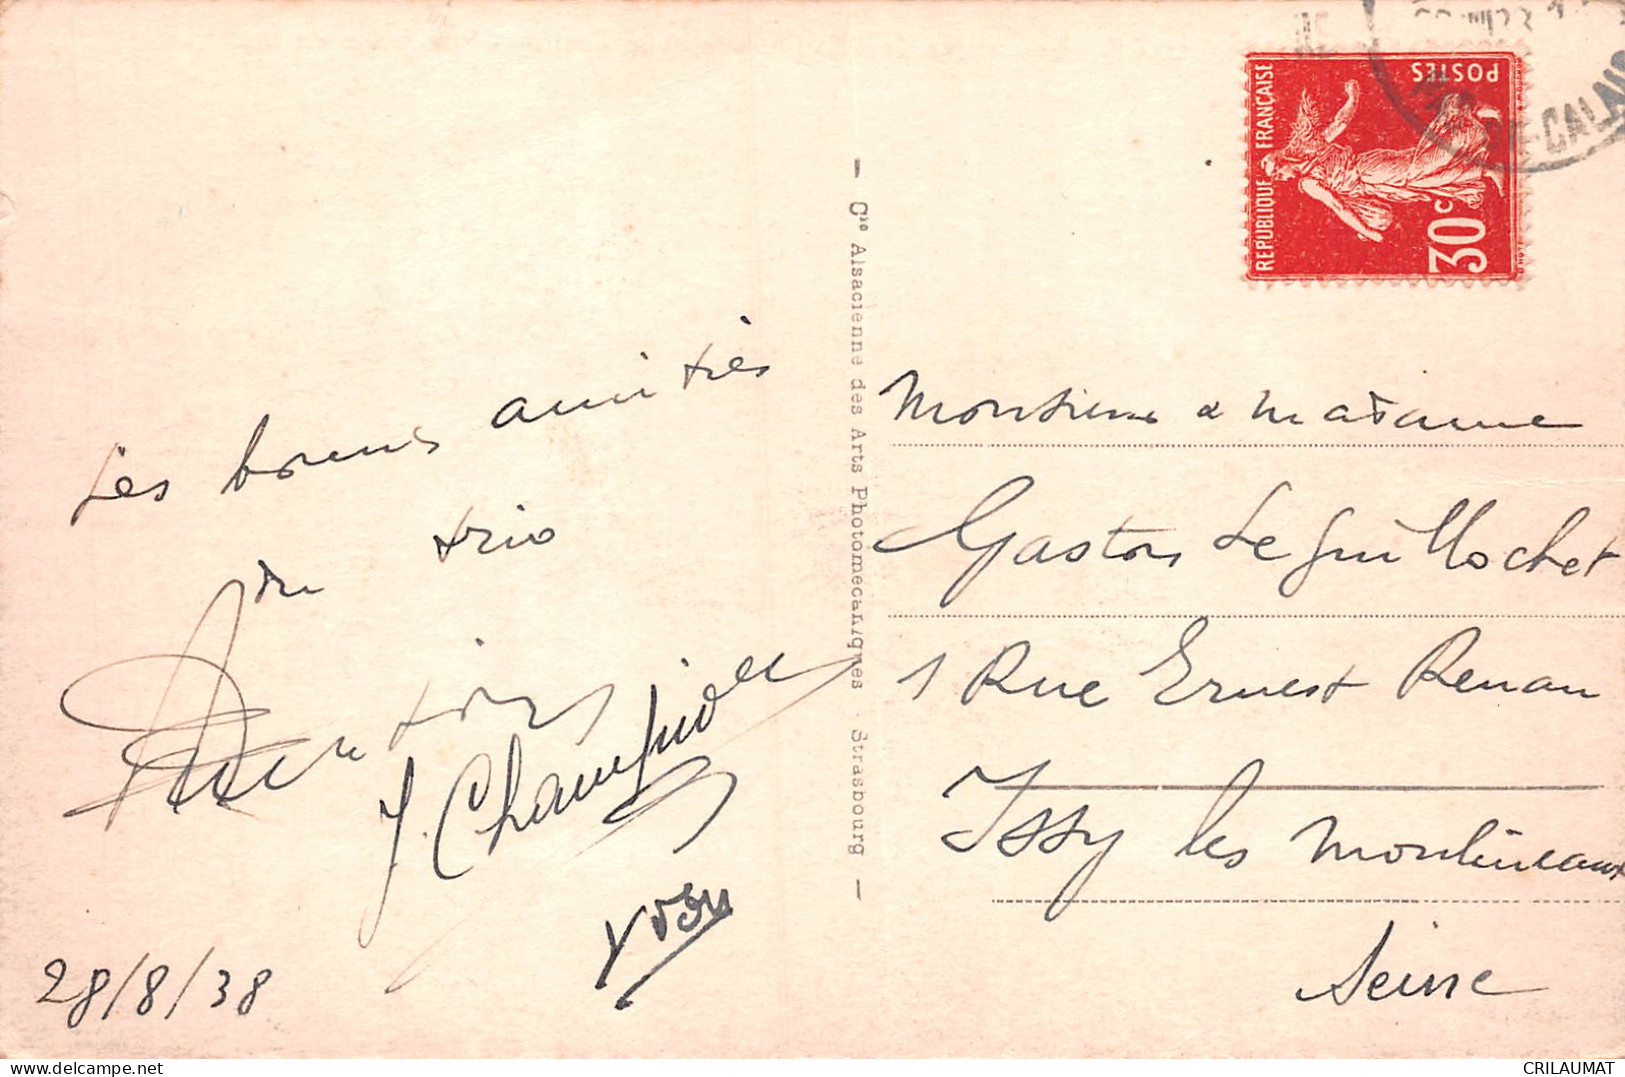 Les bonnes amitiés
du trio
J. Champion
28/8/38
Cie Alsacienne des Arts Photomécaniques - Strasbourg
REPUBLIQUE FRANÇAISE
POSTES
30c
PAS-DE-CALAIS
Monsieur & Madame
Gaston Le Guillochet
1 Rue Ernest Renan
Issy les Moulineaux
Seine
CRILAUMAT